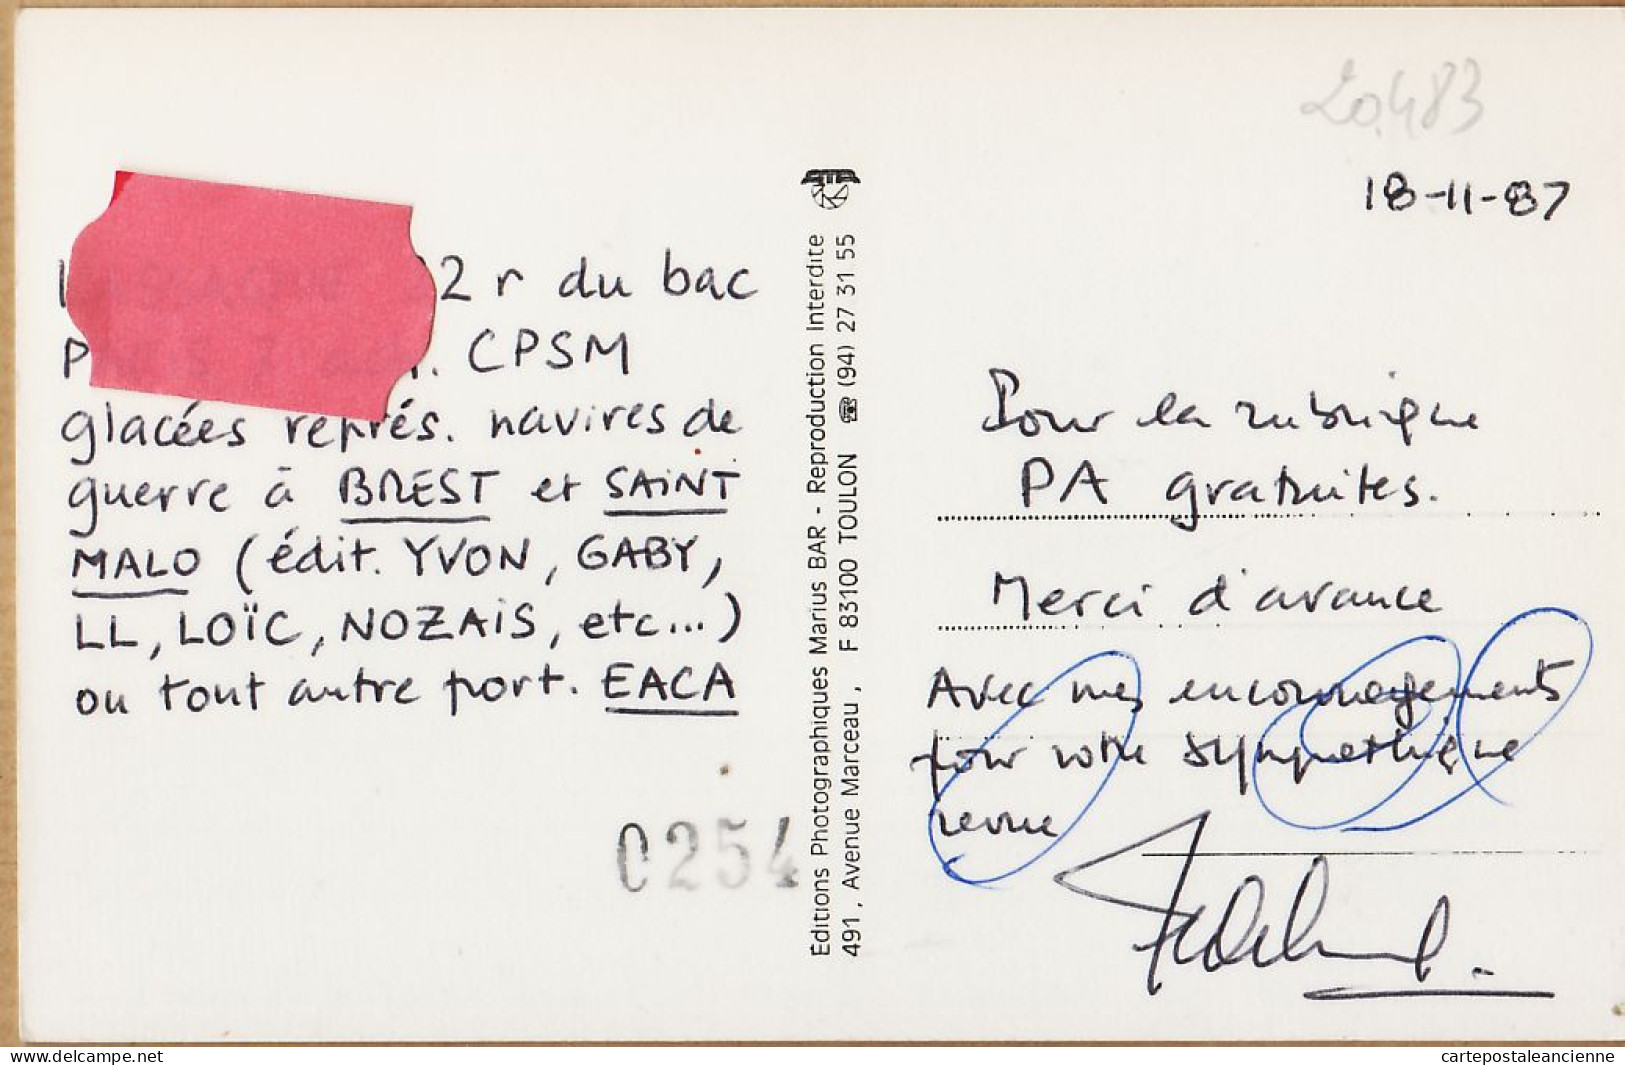 20.483
18-11-87
2 r du bac
CPSM
glacées représ. navires de
guerre à BREST et SAINT
MALO (édit. YVON, GABY,
LL, LOÏC, NOZAIS, etc...)
ou tout autre port. EACA
0254
Editions Photographiques Marius BAR - Reproduction Interdite
491, Avenue Marceau, F 83100 TOULON ☎ (94) 27 31 55
Pour la rubrique
PA gratuites.
Merci d'avance
Avec mes encouragements
pour votre sympathique
revue
delcampe.net
cartepostaleancienne